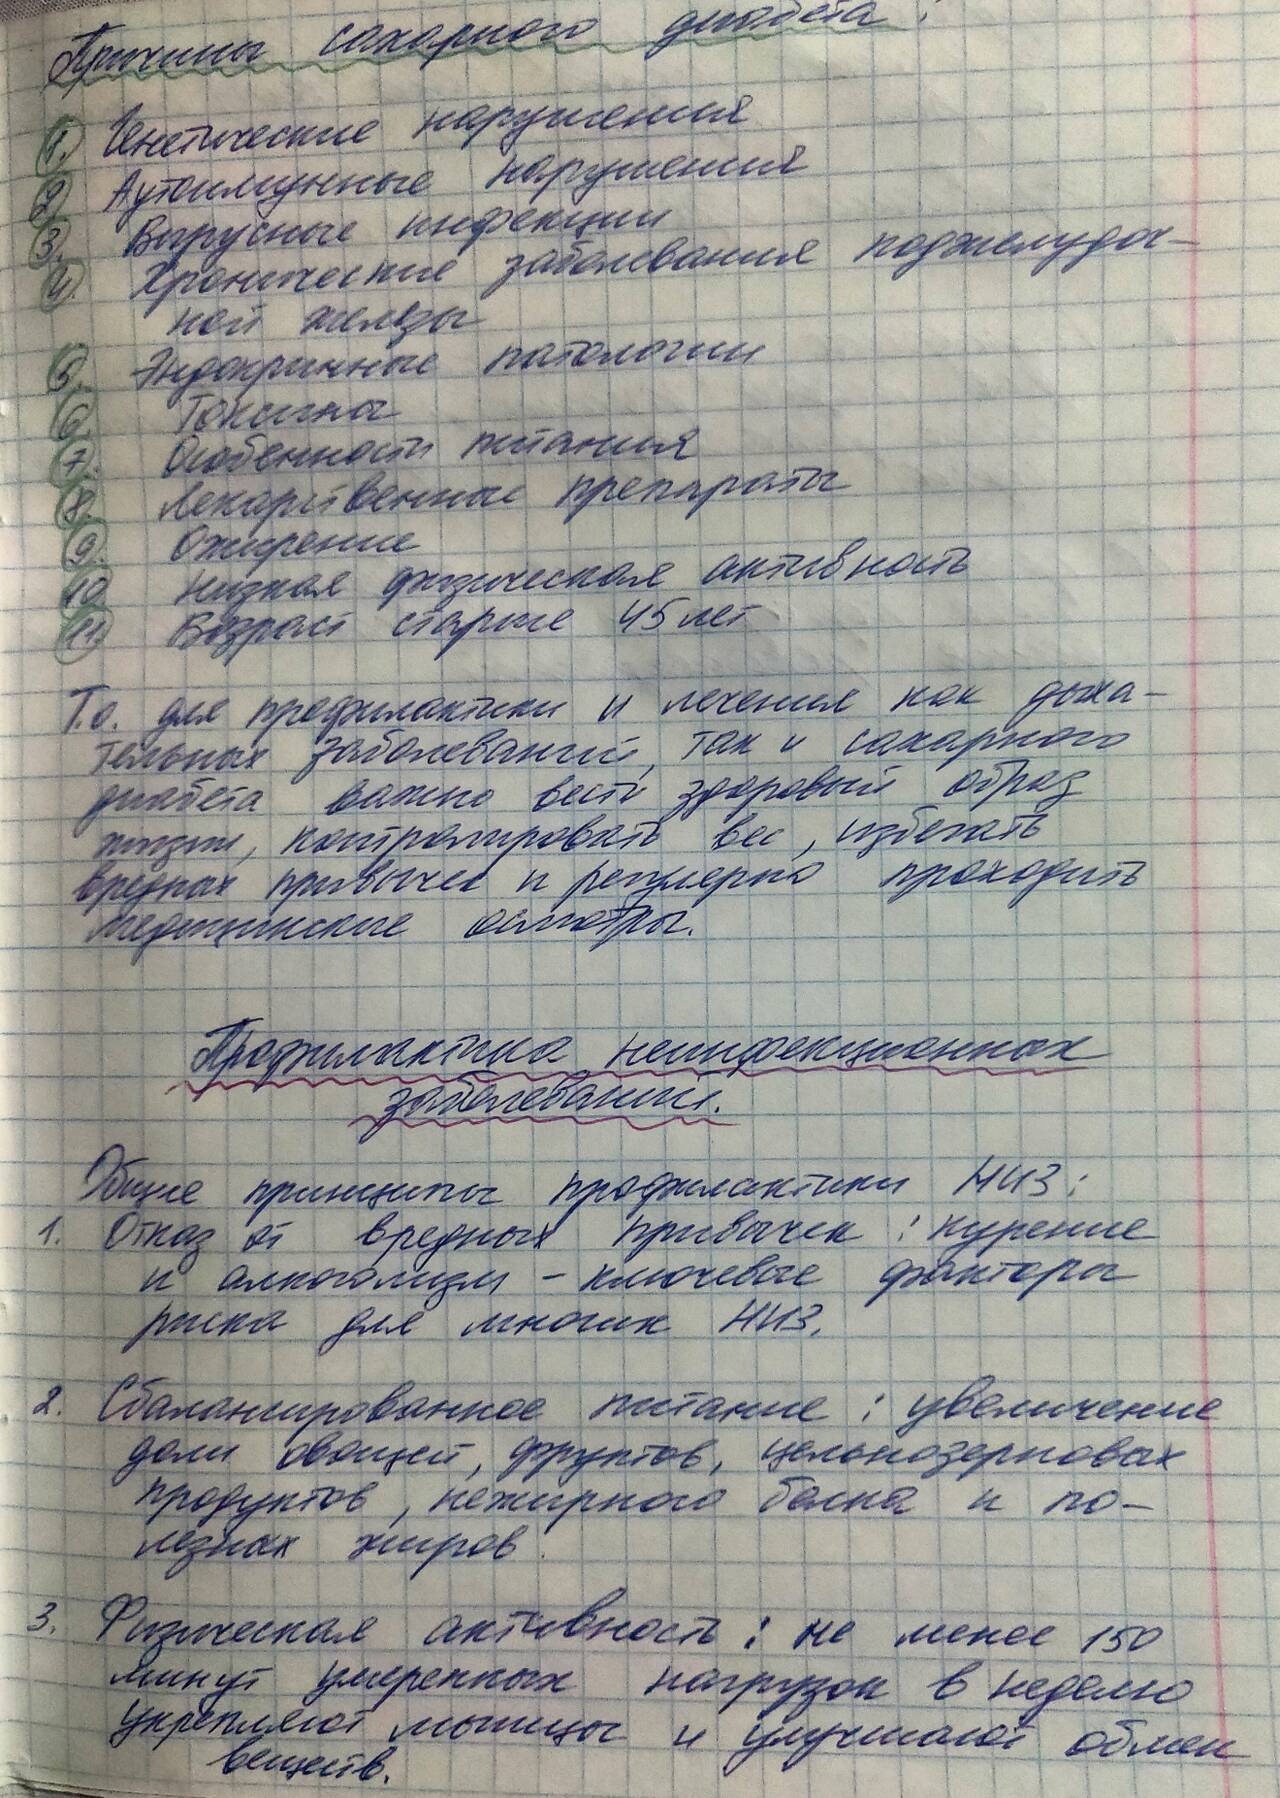 Причины сахарного диабета:
1. Генетические нарушения
2. Аутоимунные нарушения
3. Вырусные инфекции
4. Хронические заболевания поджелудоч-
ной железы
5. Эндокринные патологии
6. Токсины
7. Особенности питания
8. Лекарственные препараты
9. Ожирение
10. Низкая физическая активность
11. Возраст старше 45 лет
Т.о. для профилактики и лечения как дыха-
тельных заболеваний, так и сахарного
диабета важно вести здоровый образ
жизни, контролировать вес, избегать
вредных привычек и регулярно проходить
медицинские осмотры.
Профилактика неинфекционных
заболеваний.
Общие принципы профилактики НИЗ:
1. Отказ от вредных привычек: курение
и алкоголизм - ключевые факторы
риска для многих НИЗ.
2. Сбалансированное питание: увеличение
доли овощей, фруктов, цельнозерновых
продуктов, нежирного белка и по-
лезных жиров.
3. Физическая активность: не менее 150
минут умеренных нагрузок в неделю
укрепляют мышцы и улучшают обмен
веществ.